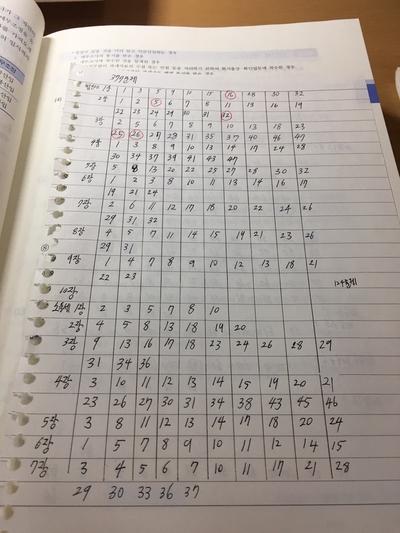 법인세 1장 1 3 5 9 10 15 16 28 30 32
2장 1 2 5 6 7 8 11 13 16 19
22 23 24 29 30 31 32
3장 2 5 6 7 8 9 10 13 18 23
25 26 27 29 31 35 37 40 46 47
4장 1 3 8 9 10 13 14 17 24 28
30 34 37 39 41 43 47
5장 5 8 13 20 22 25 27 28 30 32
6장 1 2 3 8 10 11 13 14 16 17
19 21 24
7장 2 6 11 12 17 18 20 22 24 26
29 31 32
8장 4 5 7 11 14 15 19 21 23 26
29 31
9장 1 4 7 8 9 10 12 13 18 21
22 23
10장
소득세 1장 2 3 5 7 8 10
2장 4 5 8 13 18 19 20
3장 9 13 16 17 18 23 24 26 28 29
31 34 36
4장 3 10 11 12 13 14 15 19 20 21
23 26 27 30 31 34 38 43 45 46
5장 3 8 11 12 13 14 17 18 20 24
6장 1 5 7 8 9 10 11 12 14 15
7장 3 4 5 6 7 10 11 17 21 28
29 30 33 36 37